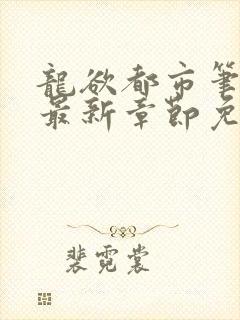 龍欲都市筆
最新章節免
裴霓裳